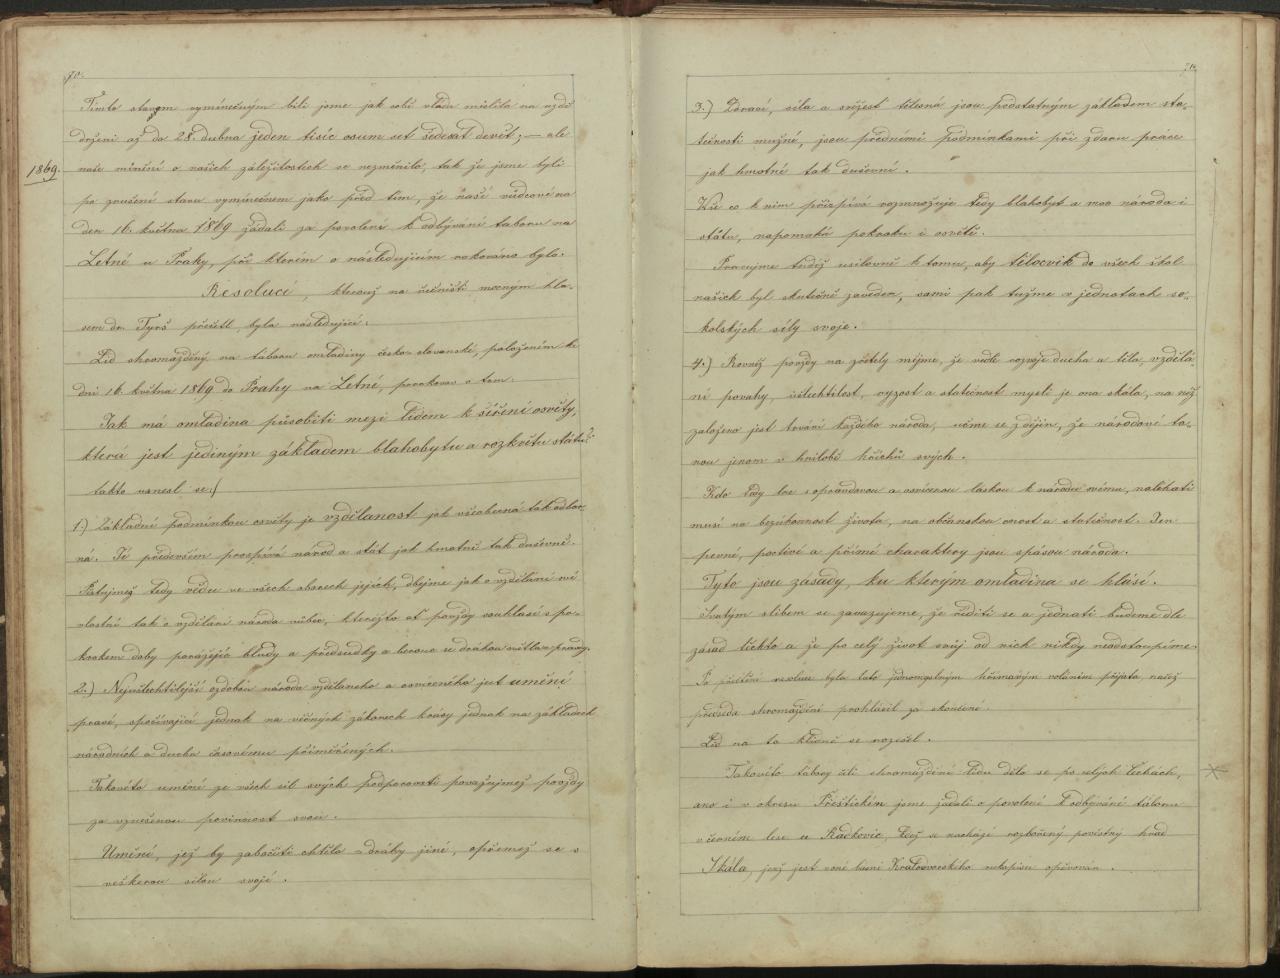 70.
Tímto stavem vymínečným bili jsme jak sobě vláda mislila na uzdě
drženi až do 28. dubna jeden tisíc osum set šedesát devět; — ale
1869.
naše mínění o našich záležitostech se nezměnilo, tak že jsme byli
po zrušení stavu vymínečnem jako před tím, že naši vůdcové na
den 16. května 1869 žádali za povolení k odbývání taboru na
Letné u Prahy, při kterém o následujícím rokováno bylo.
Resolucí, kterouž na řečništi mocným hla-
sem dr. Tyrš přečetl, byla následující:
Lid shromážděný na táboru omladiny česko-slovanské, položeném ke
dni 16. května 1869 do Prahy na Letné, porokovav o tom
Jak má omladina působiti mezi lidem k šíření osvěty,
která jest jediným základem blahobytu a rozkvětu států?
takto usnesl se:/
1.) Základní podmínkou osvěty je vzdělanost jak všeobecná tak odbor-
ná. Té především prospívá národ a stát jak hmotně tak duševně.
Pěstujmež tedy vědu ve všech oborech jejích, dbejme jak o vzdělání své
vlastní tak o vzdělání národa vůbec, kteréžto ať povždy souhlasí s po-
krokem doby porážejíc bludy a předsudky a berouc se dráhou světla a pravdy.
2.) Nejušlechtilejší ozdobou národa vzdělaného a osvíceného jest umění
pravé, spočívající jednak na věčných zákonech krásy jednak na základech
národních a duchu časovému přiměřených.
Takovéto umění ze všech sil svých podporovati považujmež povždy
za vznešenou povinnost svou.
Umění, jež by zabočiti chtělo v dráhy jiné, opřemež se s
veškerou silou svojí.
71.
3.) Zdraví, síla a svěžest tělesná jsou podstatným základem sta-
tečnosti mužné, jsou předními podmínkami při zdaru práce
jak hmotné tak duševní.
Vše co k nim přispívá rozmnožuje tedy blahobyt a moc národa i
státu, napomahá pokroku i osvětě.
Pracujme tudíž usilovně k tomu, aby tělocvik do všech škol
našich byl skutečně zaveden, sami pak tužme v jednotach so-
kolských síly svoje.
4.) Rovněž povždy na zřeteli mějme, že vedle rozvoje ducha a těla, vzdělá-
ní povahy, ušlechtilost, ryzost a statečnost mysli je ona skála, na níž
založeno jest trvání každého národa, učme se z dějin, že národové to-
nou jenom v hnilobě hříchů svých.
Kdo tedy lne s opravdovou a osvícenou láskou k národu svému, naléhati
musí na bezúhonnost života, na občanskou ctnost a statečnost. Jen
pevné, poctivé a přísné charaktery jsou spásou národa.
Tyto jsou zásady, ku kterým omladina se hlásí.
Svatým slibem se zavazujeme, že říditi se a jednati budeme dle
zásad těchto a že po celý život svůj od nich nikdy neodstoupíme
Po přečtění resoluce byla tato jednomyslným hřímavým voláním přijata načež
předseda shromáždění prohlásil za skončené
Lid na to klidně se rozešel.
Takovéto tábory čili shromáždění lidu dělo se po celých Čechách,
ano i v okresu Přeštickém jsme žádali o povolení k odbývání táboru
v černém lese u Radkovic, kdež se nachází rozbořený pověstný hrad
Skála, jenž jest v básni Kralodvorského rukopisu opěvován.